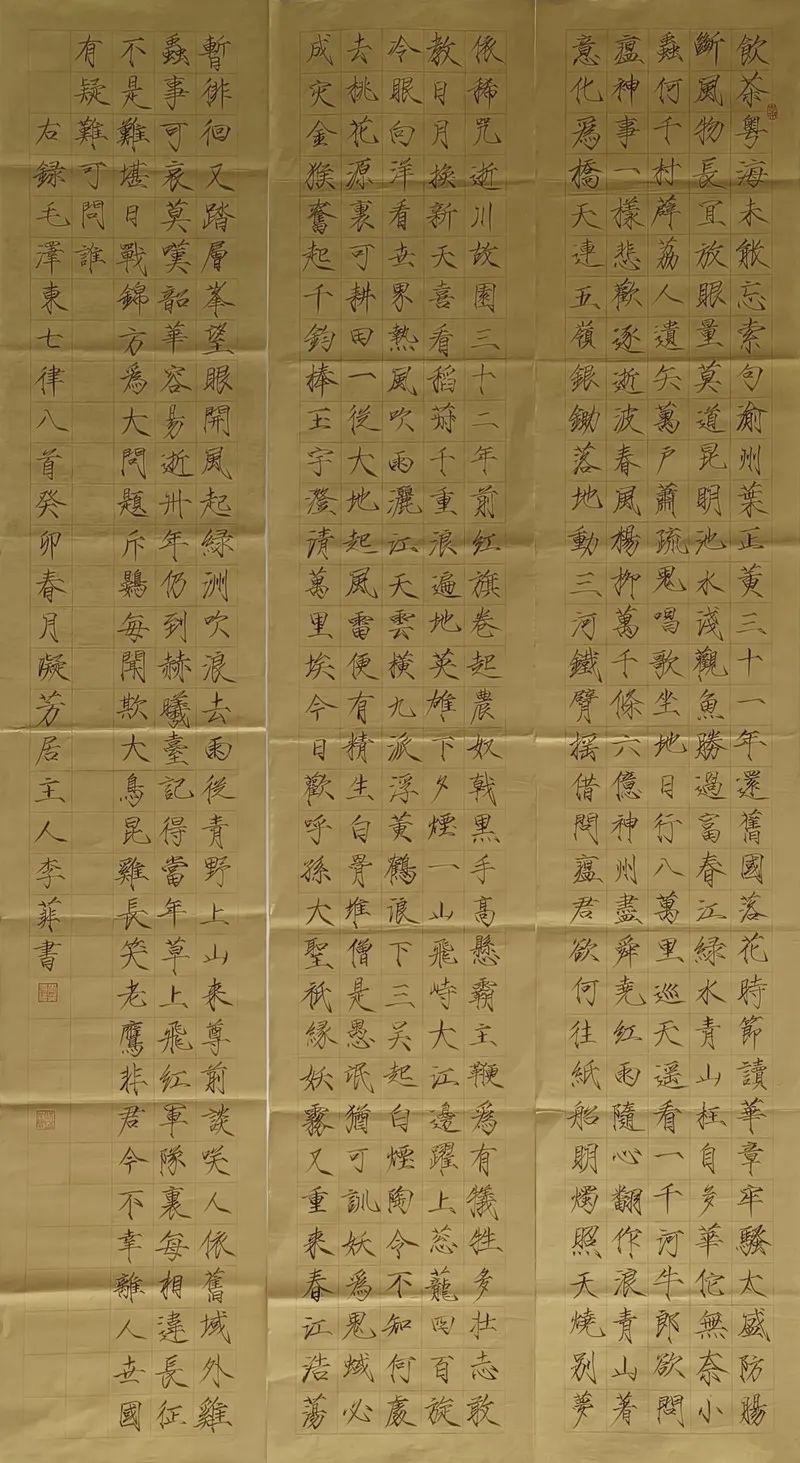 飲茶粵海未能忘索句渝州葉正黃三十一年還舊國落花時節讀華章牢騷太盛防腸
斷風物長宜放眼量莫道昆明池水淺觀魚勝過富春江綠水青山枉自多華佗無奈小
蟲何千村薜荔人遺矢萬戶蕭疏鬼唱歌坐地日行八萬里巡天遙看一千河牛郎欲問
瘟神事一樣悲歡逐逝波春風楊柳萬千條六億神州盡舜堯紅雨隨心翻作浪青山著
意化爲橋天連五嶺銀鋤落地動三河鐵臂搖借問瘟君欲何往紙船明燭照天燒別夢
依稀咒逝川故園三十二年前紅旗卷起農奴戟黑手高懸霸主鞭爲有犧牲多壯志敢
教日月換新天喜看稻菽千重浪遍地英雄下夕煙一山飛峙大江邊躍上蔥蘢四百旋
冷眼向洋看世界熱風吹雨灑江天雲橫九派浮黃鶴浪下三吳起白煙陶令不知何處
去桃花源裏可耕田一從大地起風雷便有精生白骨堆僧是愚氓猶可訓妖爲鬼蜮必
成災金猴奮起千鈞棒玉宇澄清萬里埃今日歡呼孫大聖祇緣妖霧又重來春江浩蕩
暫徘徊又踏層峯望眼開風起綠洲吹浪去雨從青野上山來尊前談笑人依舊域外雞
蟲事可哀莫嘆韶華容易逝卅年仍到赫曦臺記得當年草上飛紅軍隊裏每相違長征
不是難堪日戰錦方爲大問題斥鷃每聞欺大鳥昆雞長笑老鷹非君今不幸離人世國
有疑難可問誰
右錄毛澤東七律八首癸卯春月凝芳居主人李菲書